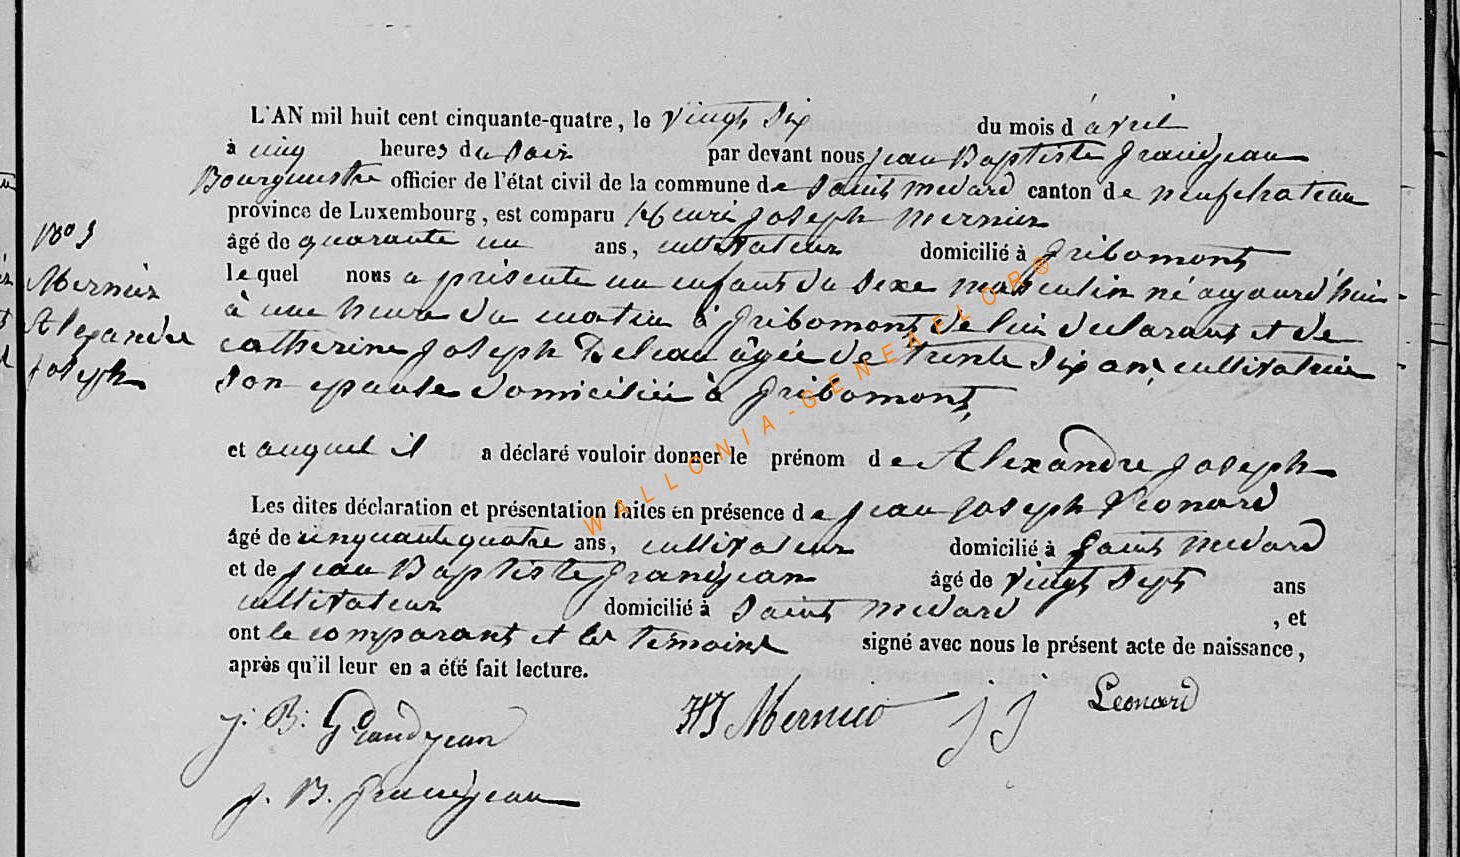 L'AN mil huit cent cinquante-quatre, le vingt six du mois d'avril
à cinq heures du soir par devant nous Jean Baptiste Grandjean
Bourgmestre officier de l'état civil de la commune de Saint Medard canton de neufchateau
province de Luxembourg, est comparu Henri Joseph Mernier
âgé de quarante un ans, cultivateur domicilié à Gribomont
lequel nous a présenté un enfant du sexe masculin né aujourd'hui
à une heure du matin à Gribomont de lui declarant et de
catherine Joseph Deleau âgée de trente six ans, cultivatrice
son epouse domiciliée à Gribomont,
et auquel il a déclaré vouloir donner le prénom de Alexandre Joseph
Les dites déclaration et présentation faites en présence de Jean Joseph Leonard
âgé de cinquante quatre ans, cultivateur domicilié à Saint Medard
et de Jean Baptiste Grandjean âgé de vingt sept ans
cultivateur domicilié à Saint Medard, et
ont le comparant et les temoins signé avec nous le présent acte de naissance,
après qu'il leur en a été fait lecture.
J. B. Grandjean HJ Mernier J J Leonard
J. B. Grandjean
Mernier
Alexandre
Joseph
WALLONIA-GENEALOR®